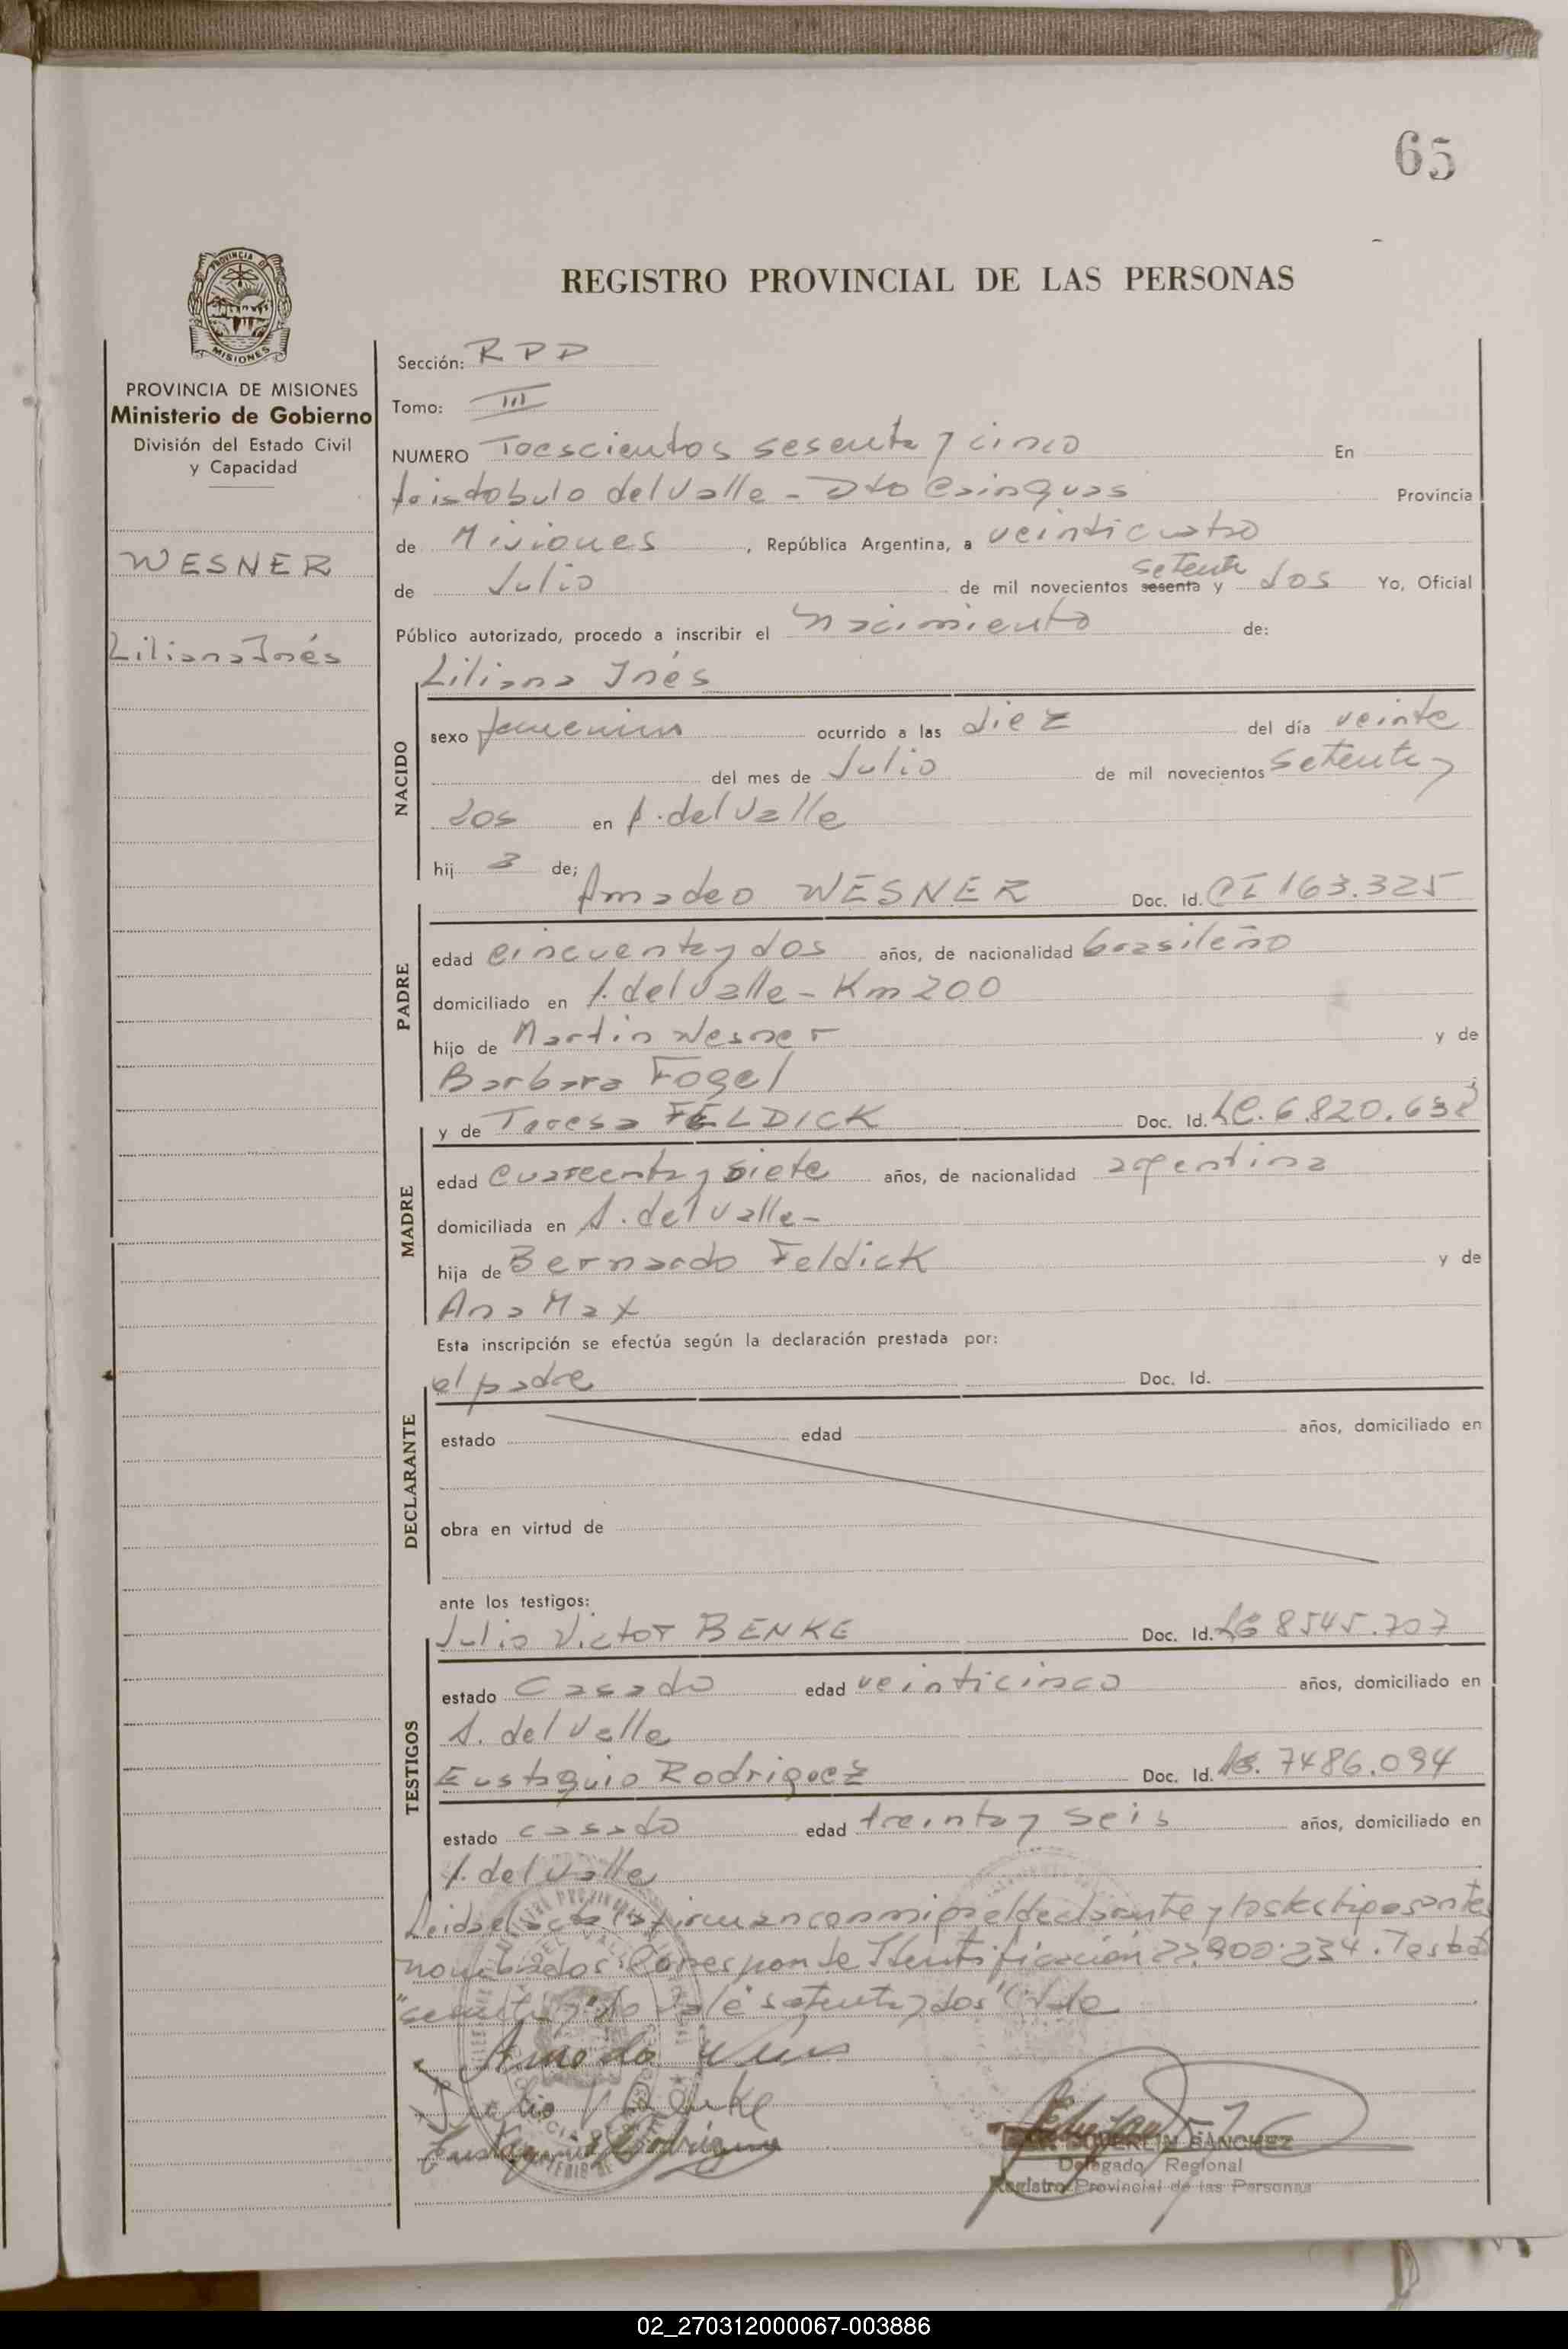 65
REGISTRO PROVINCIAL DE LAS PERSONAS
PROVINCIA DE MISIONES
PROVINCIA DE MISIONES
Ministerio de Gobierno
División del Estado Civil
y Capacidad
WESNER
Liliana Inés
Sección: RPP
Tomo: III
NUMERO Trescientos sesenta y cinco En
Aristobulo del Valle - Dto Cainguas Provincia
de Misiones, República Argentina, a veinticuatro
setenta
de Julio de mil novecientos sesenta y dos Yo, Oficial
Público autorizado, procedo a inscribir el nacimiento de:
Liliana Inés
NACIDO
sexo femenino ocurrido a las diez del día veinte
del mes de Julio de mil novecientos setenta y
dos en A. del Valle
hij a de;
Amadeo WESNER Doc. Id. CI 163.325
PADRE
edad cincuenta y dos años, de nacionalidad brasileño
domiciliado en A. del Valle - Km 200
hijo de Martin Wesner y de
Barbara Fogel
y de Teresa FELDICK Doc. Id. LC. 6.820.638
MADRE
edad cuarenta y siete años, de nacionalidad argentina
domiciliada en A. del Valle -
hija de Bernardo Feldick y de
Ana Max
Esta inscripción se efectúa según la declaración prestada por:
el padre Doc. Id.
DECLARANTE
estado edad años, domiciliado en
obra en virtud de
ante los testigos:
Julio Victor BENKE Doc. Id. LE 8545.707
TESTIGOS
estado Casado edad veinticinco años, domiciliado en
A. del Valle
Eustaquio Rodriguez Doc. Id. LE. 7486.094
estado casado edad treinta y seis años, domiciliado en
A. del Valle
Leida el acta la firman conmigo el declarante y los testigos ante
nombrados. Corresponde Identificación 22.900.234. Testado
vale "setenta y dos"
Amado
Julio V Benke
Eustaquio Rodriguez
SANCHEZ
Delegado Regional
Registro Provincial de las Personas
02_270312000067-003886